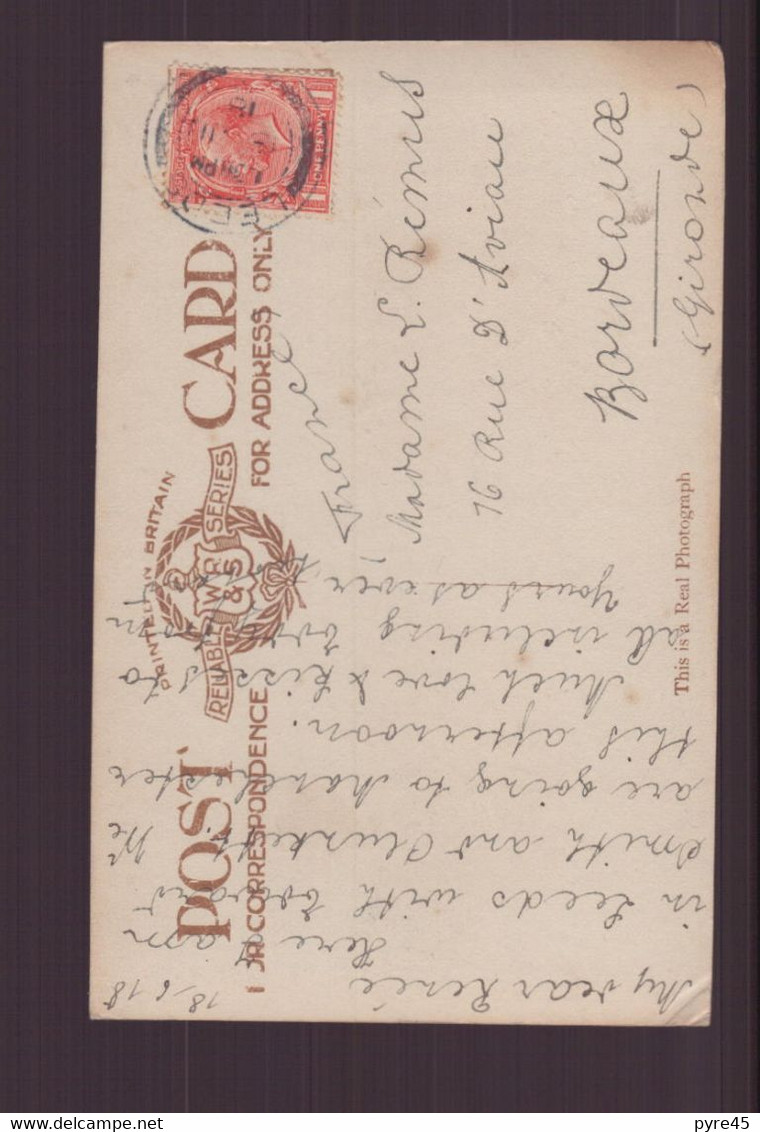 POST CARD
PRINTED IN BRITAIN
RELIABLE
W.R. & S
SERIES
FOR CORRESPONDENCE
FOR ADDRESS ONLY
ONE PENNY
LEEDS
18-6-18
My dear Renée
Here I am
in Leeds with Edward
Smith and Plunkett. We
are going to Manchester
this afternoon.
Much love & kisses to
all including
Yours as ever
France
Madame L. Rémus
76 Rue D'Aviau
Bordeaux
(Gironde)
This is a Real Photograph
pyre45